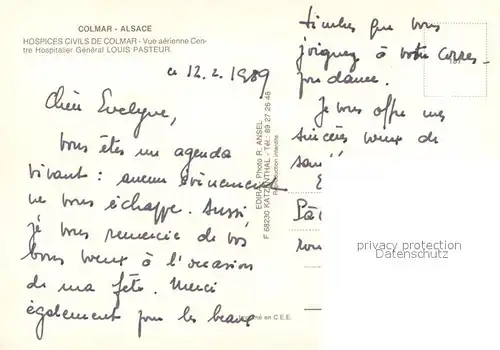 COLMAR - ALSACE
HOSPICES CIVILS DE COLMAR - Vue aérienne Cen-
tre Hospitalier Général LOUIS PASTEUR.
ce 12.2.1989
Chère Evelyne,
Vous êtes un agenda
vivant : aucun évènement
ne vous échappe. Aussi,
je vous remercie de vos
bons vœux à l'occasion
de ma fête. Merci
également pour les beaux
timbres que vous
joignez à votre corres-
pondance.
Je vous offre mes
sincères vœux de
santé
EDIRA - Photo R. ANSEL
F 68230 KATZENTHAL - Tél.: 89 27 26 48
Reproduction interdite
en C.E.E.
privacy protection
Datenschutz